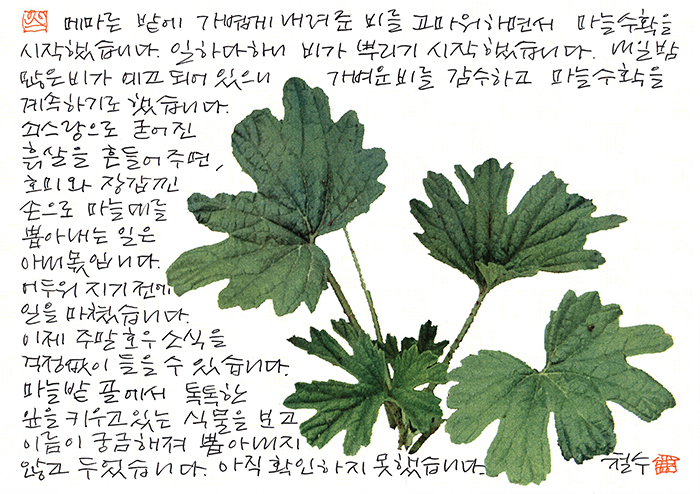 메마른 밭에 가볍게 내려준 비를 고마워하면서 마늘수확을
시작했습니다. 일하다하니 비가 뿌리기 시작했습니다. 내일밤
많은비가 예고 되어있으니 가벼운비를 감수하고 마늘수확을
계속하기로 했습니다.
쇠스랑으로 굳어진
흙살을 흔들어주면,
호미와 장갑낀
손으로 마늘대를
뽑아내는 일은
아내몫입니다.
어두워 지기전에
일을 마쳤습니다.
이제 주말호우소식을
걱정없이 들을 수 있습니다.
마늘밭 풀에서 톡톡한
잎을 키우고있는 식물을 보고
이름이 궁금해져 뽑아내지
않고 두었습니다. 아직 확인하지 못했습니다.
철수